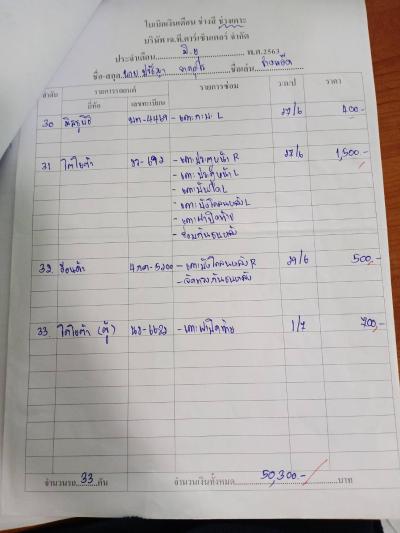 ใบเบิกเงินเดือน ช่างสี ช่างเคาะ
บริษัท เจ.ที.คาร์เซ็นเตอร์ จำกัด
ประจำเดือน มิ.ย พ.ศ.2563
ชื่อ-สกุล ชื่อเล่น
ลำดับ รายการรถยนต์ รายการซ่อม ว/ด/ป ราคา
ยี่ห้อ เลขทะเบียน
30 มิตซูบิชิ -4469 - เคาะ L 27/6 400.-
31 โตโยต้า - เคาะประตูหน้า R 27/6 1,500.-
- เคาะประตูหน้า L
- เคาะบันได L
- เคาะบังโคลนหลัง L
- เคาะฝาปิดท้าย
- ซ่อมกันชนหลัง
32. ฮอนด้า 4กศ-5200 - เคาะบังโคลนหลัง R 29/6 500.-
กันชนหลัง
33 โตโยต้า (ตู้) - เคาะฝาปิดท้าย 1/7 700.-
จำนวนรถ 33 คัน จำนวนเงินทั้งหมด 50,300.- บาท